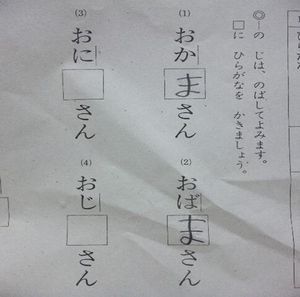 ◎｜の じは、のばしてよみます。
□に ひらがなを かきましょう。
(1)
おかまさん
(2)
おばまさん
(3)
おに□さん
(4)
おじ□さん